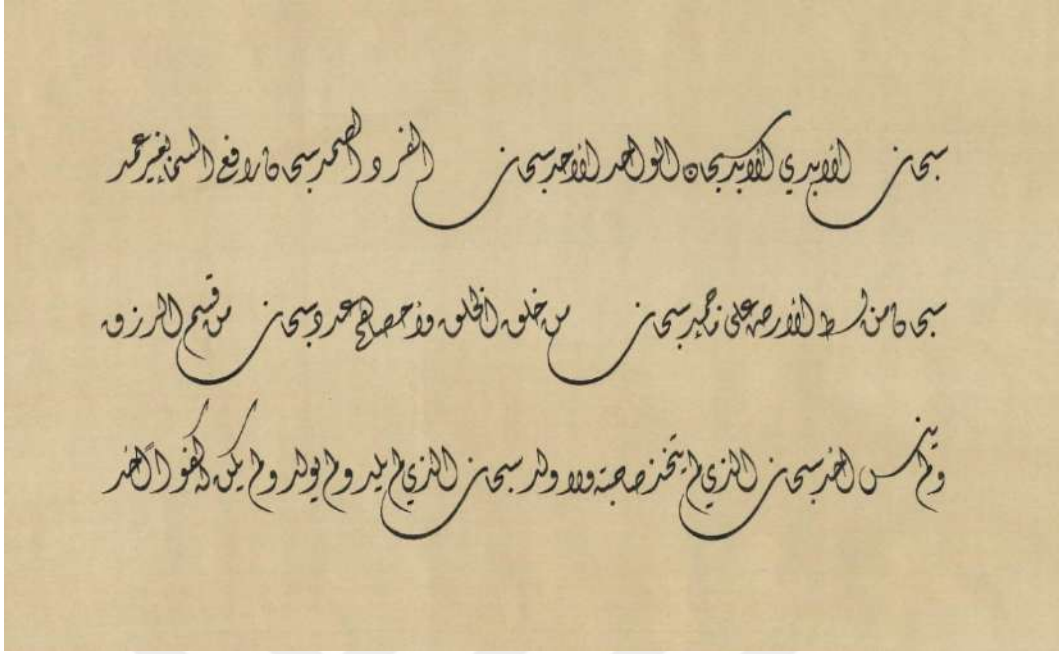 سبحان الأبدي الأبد سبحان الواحد الأحد سبحان الفرد الصمد سبحان رافع السماء بغير عمد
سبحان من بسط الأرض على ماء جمد سبحان من خلق الخلق وأحصاهم عدد سبحان من قسم الرزق
ولم ينس أحد سبحان الذي لم يتخذ صاحبة ولا ولد سبحان الذي لم يلد ولم يولد ولم يكن له كفوا أحد